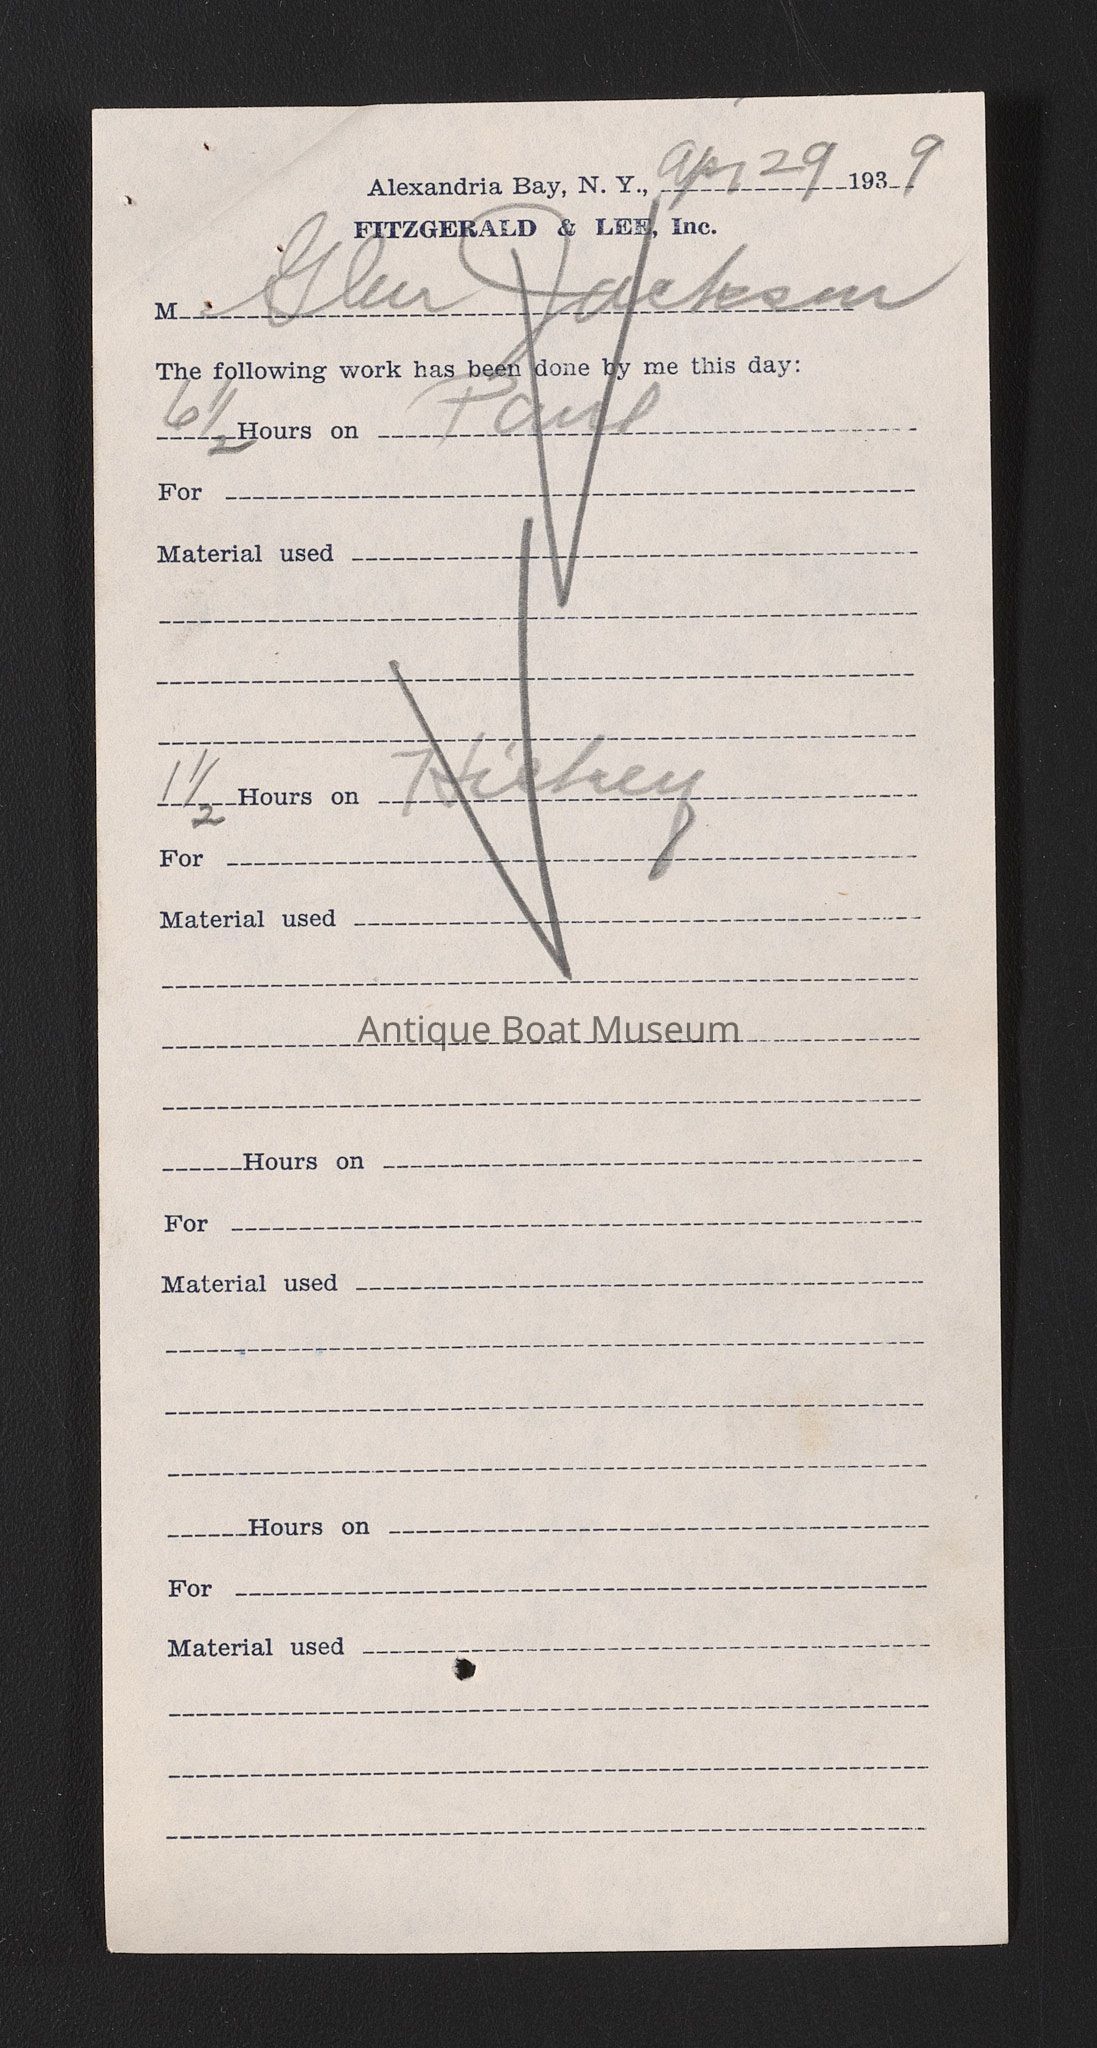 Alexandria Bay, N. Y., Apr 29 1939
FITZGERALD & LEE, Inc.
M Glen Jackson
The following work has been done by me this day:
6 1/2 Hours on Paul
For
Material used
1 1/2 Hours on Hickey
For
Material used
Antique Boat Museum
Hours on
For
Material used
Hours on
For
Material used